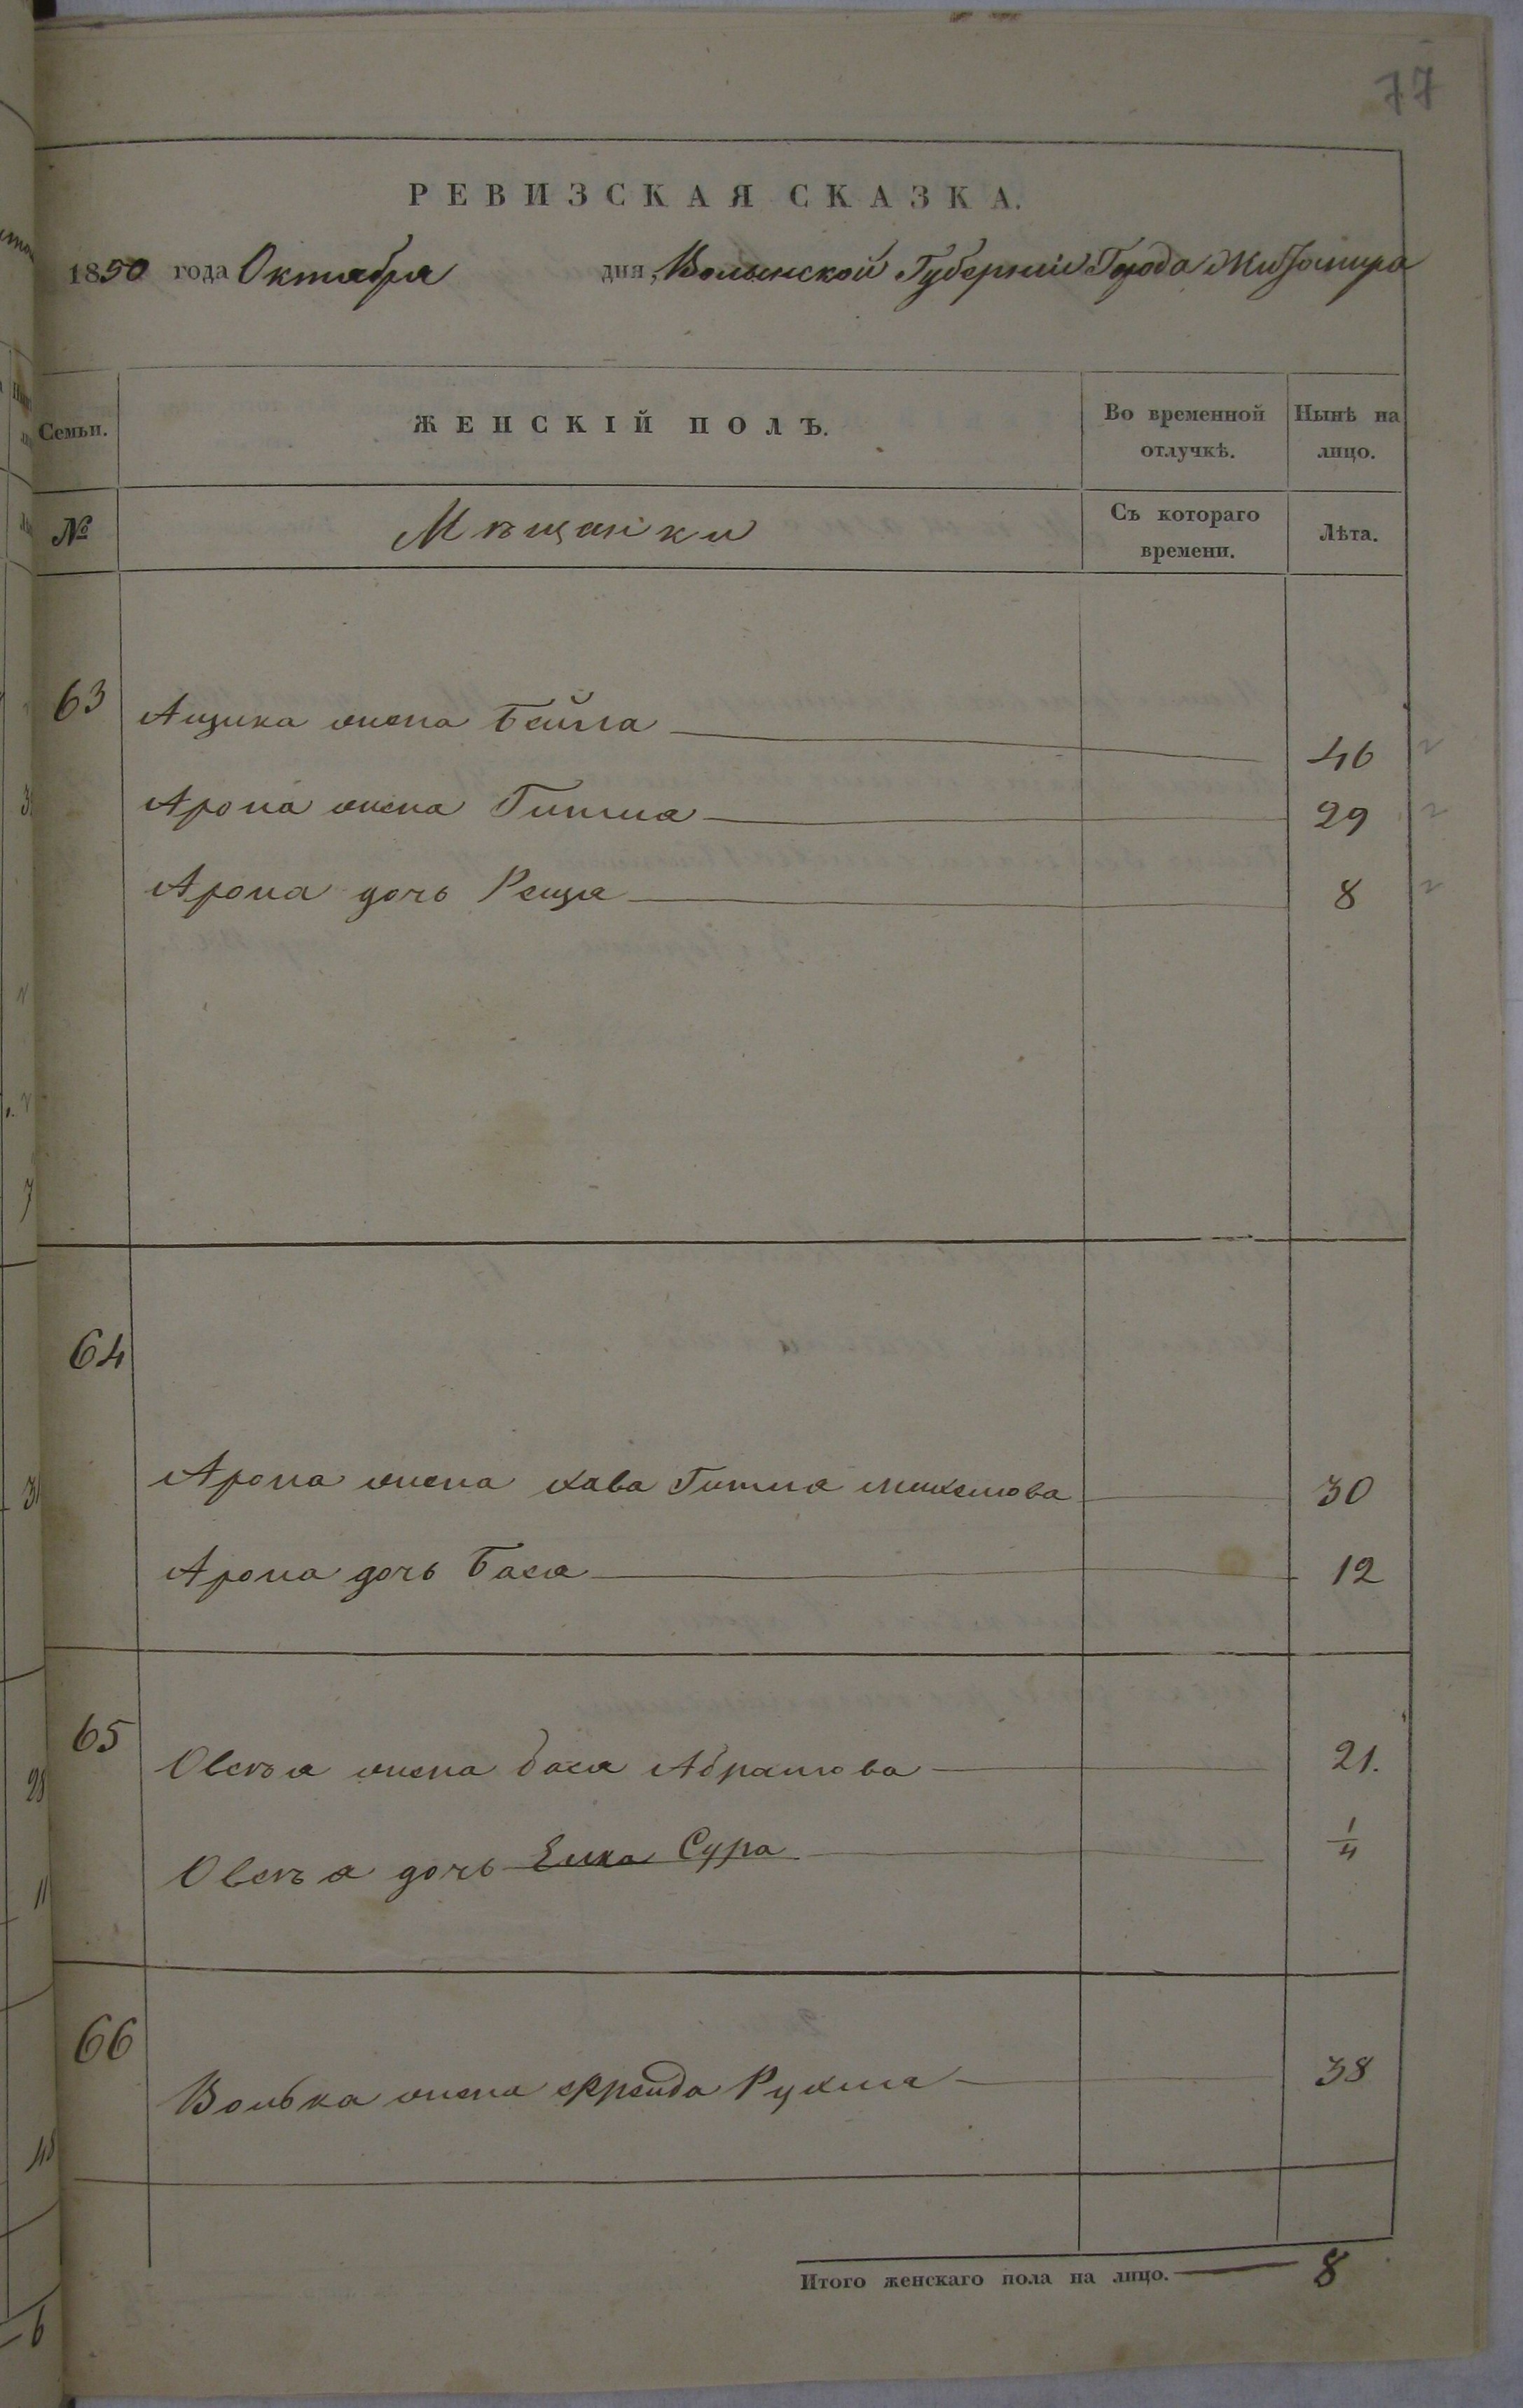 77
РЕВИЗСКАЯ СКАЗКА.
1850 года Октября дня, Волынской Губерніи Города Житомира
Семьи. ЖЕНСКІЙ ПОЛЪ. Во временной отлучкѣ. Нынѣ на лицо.
№ Мѣщанки Съ котораго времени. Лѣта.
63 Ицика жена Бейла 46
Арона жена Гитля 29
Арона дочь 8
64
Арона жена Хава Гитля 30
Арона дочь Бася 12
65 Овсѣя жена Бася Абрамова 21.
Овсѣя дочь Елка Сура 1/4
66
Волька жена Фрейда Рухля 38
Итого женскаго пола на лицо. 8